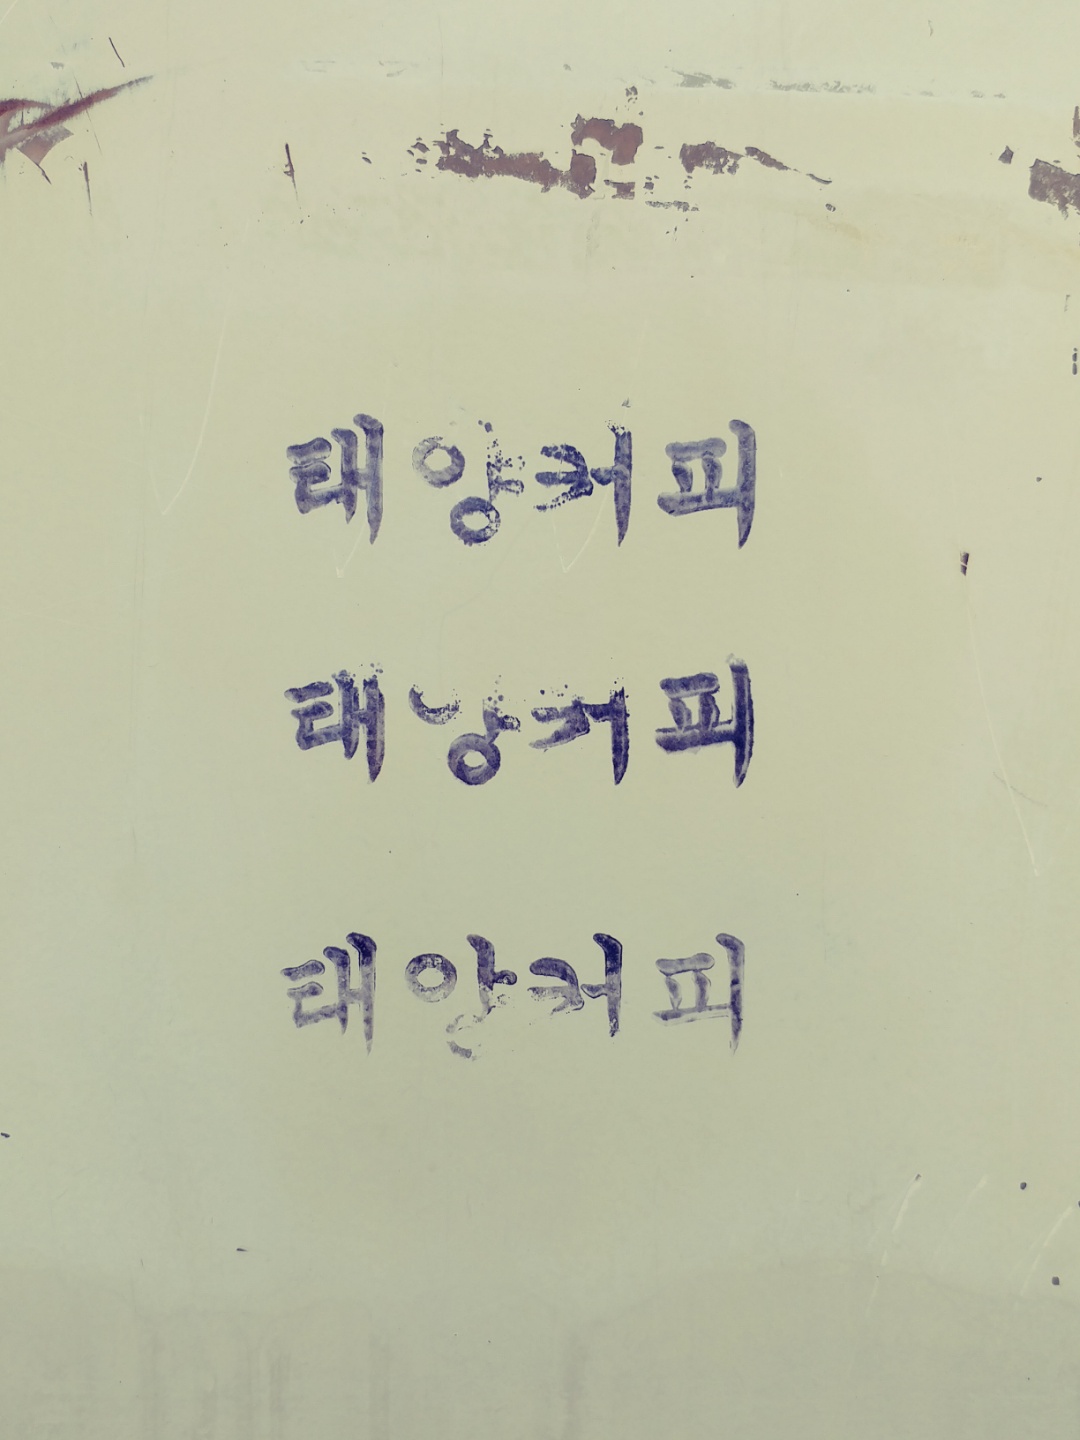 태양커피
태양커피
태양커피